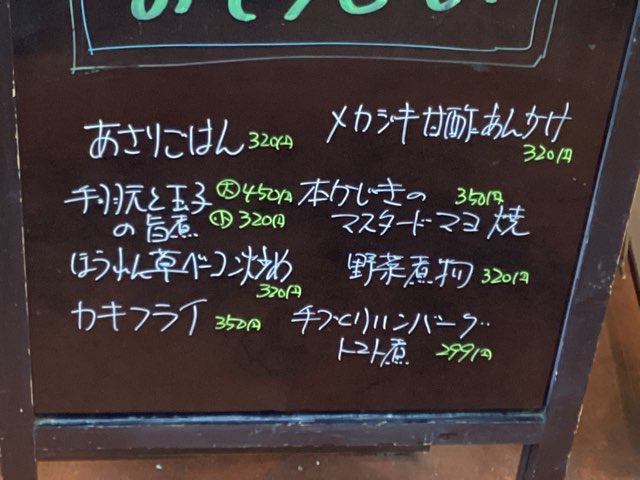 あさりごはん 320円
手羽元と玉子 大 450円
の旨煮 小 320円
ほうれん草ベーコン炒め
320円
カキフライ 352円
メカジキ甘酢あんかけ
320円
本かじきの 350円
マスタードマヨ焼
野菜煮物 320円
手づくりハンバーグ
トマト煮 299円